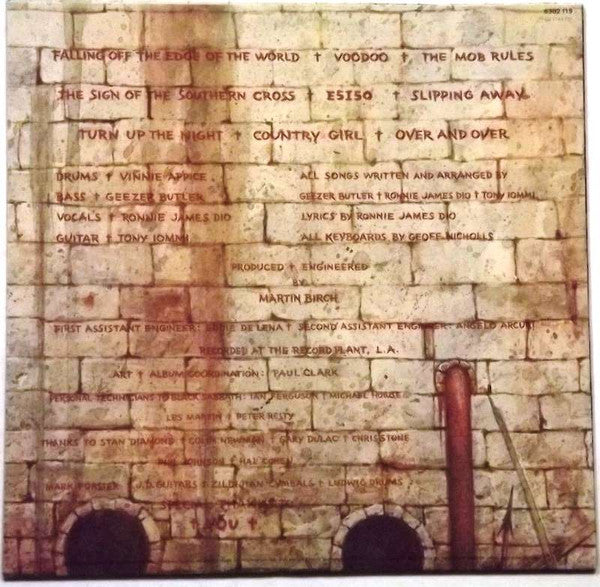 6302 119
FALLING OFF THE EDGE OF THE WORLD † VOODOO † THE MOB RULES
THE SIGN OF THE SOUTHERN CROSS † E5150 † SLIPPING AWAY
TURN UP THE NIGHT † COUNTRY GIRL † OVER AND OVER
DRUMS † VINNIE APPICE
BASS † GEEZER BUTLER
VOCALS † RONNIE JAMES DIO
GUITAR † TONY IOMMI
ALL SONGS WRITTEN AND ARRANGED BY
GEEZER BUTLER † RONNIE JAMES DIO † TONY IOMMI
LYRICS BY RONNIE JAMES DIO
ALL KEYBOARDS BY GEOFF NICHOLLS
PRODUCED † ENGINEERED
BY
MARTIN BIRCH
FIRST ASSISTANT ENGINEER: EDDIE DELENA † SECOND ASSISTANT ENGINEER: ANGELO ARCURI
RECORDED AT THE RECORD PLANT, L.A.
ART † ALBUM COORDINATION: PAUL CLARK
PERSONAL TECHNICIANS TO BLACK SABBATH: IAN FERGUSON † MICHAEL HODGE
LES MARTIN † PETER RESTY
THANKS TO STAN DIAMOND † COLIN NEWMAN † GARY DULAC † CHRIS STONE
JOHNSON † HAL COHEN
MARK FORSTER † J.D. GUITARS † ZILDJIAN CYMBALS † LUDWIG DRUMS
SPECIAL
† YOU †